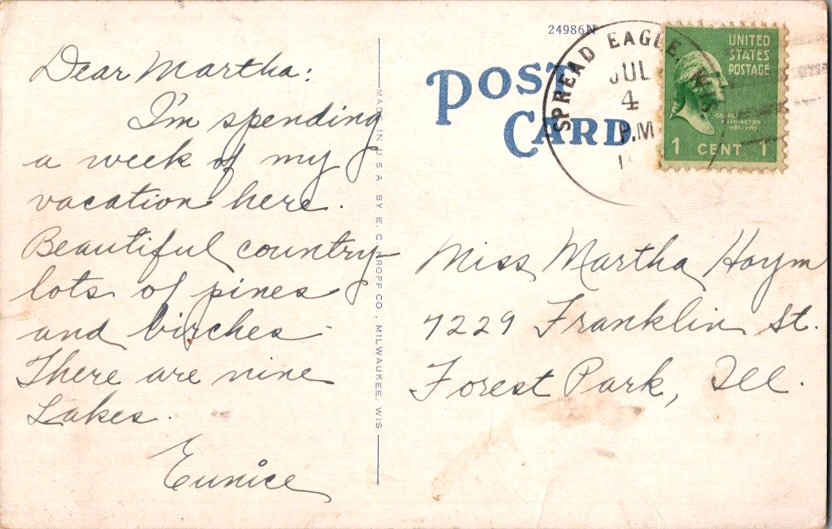 Dear Martha:
I'm spending
a week of my
vacation here.
Beautiful country
lots of pines
and birches.
There are nine
Lakes.
Eunice
MADE IN U.S.A. BY E. C. KROPP CO., MILWAUKEE, WIS
24986N
POST
CARD
SPREAD EAGLE, WIS
JUL
4
P.M
UNITED
STATES
POSTAGE
GEORGE
WASHINGTON
1 CENT 1
Miss Martha Hoym
7229 Franklin St.
Forest Park, Ill.